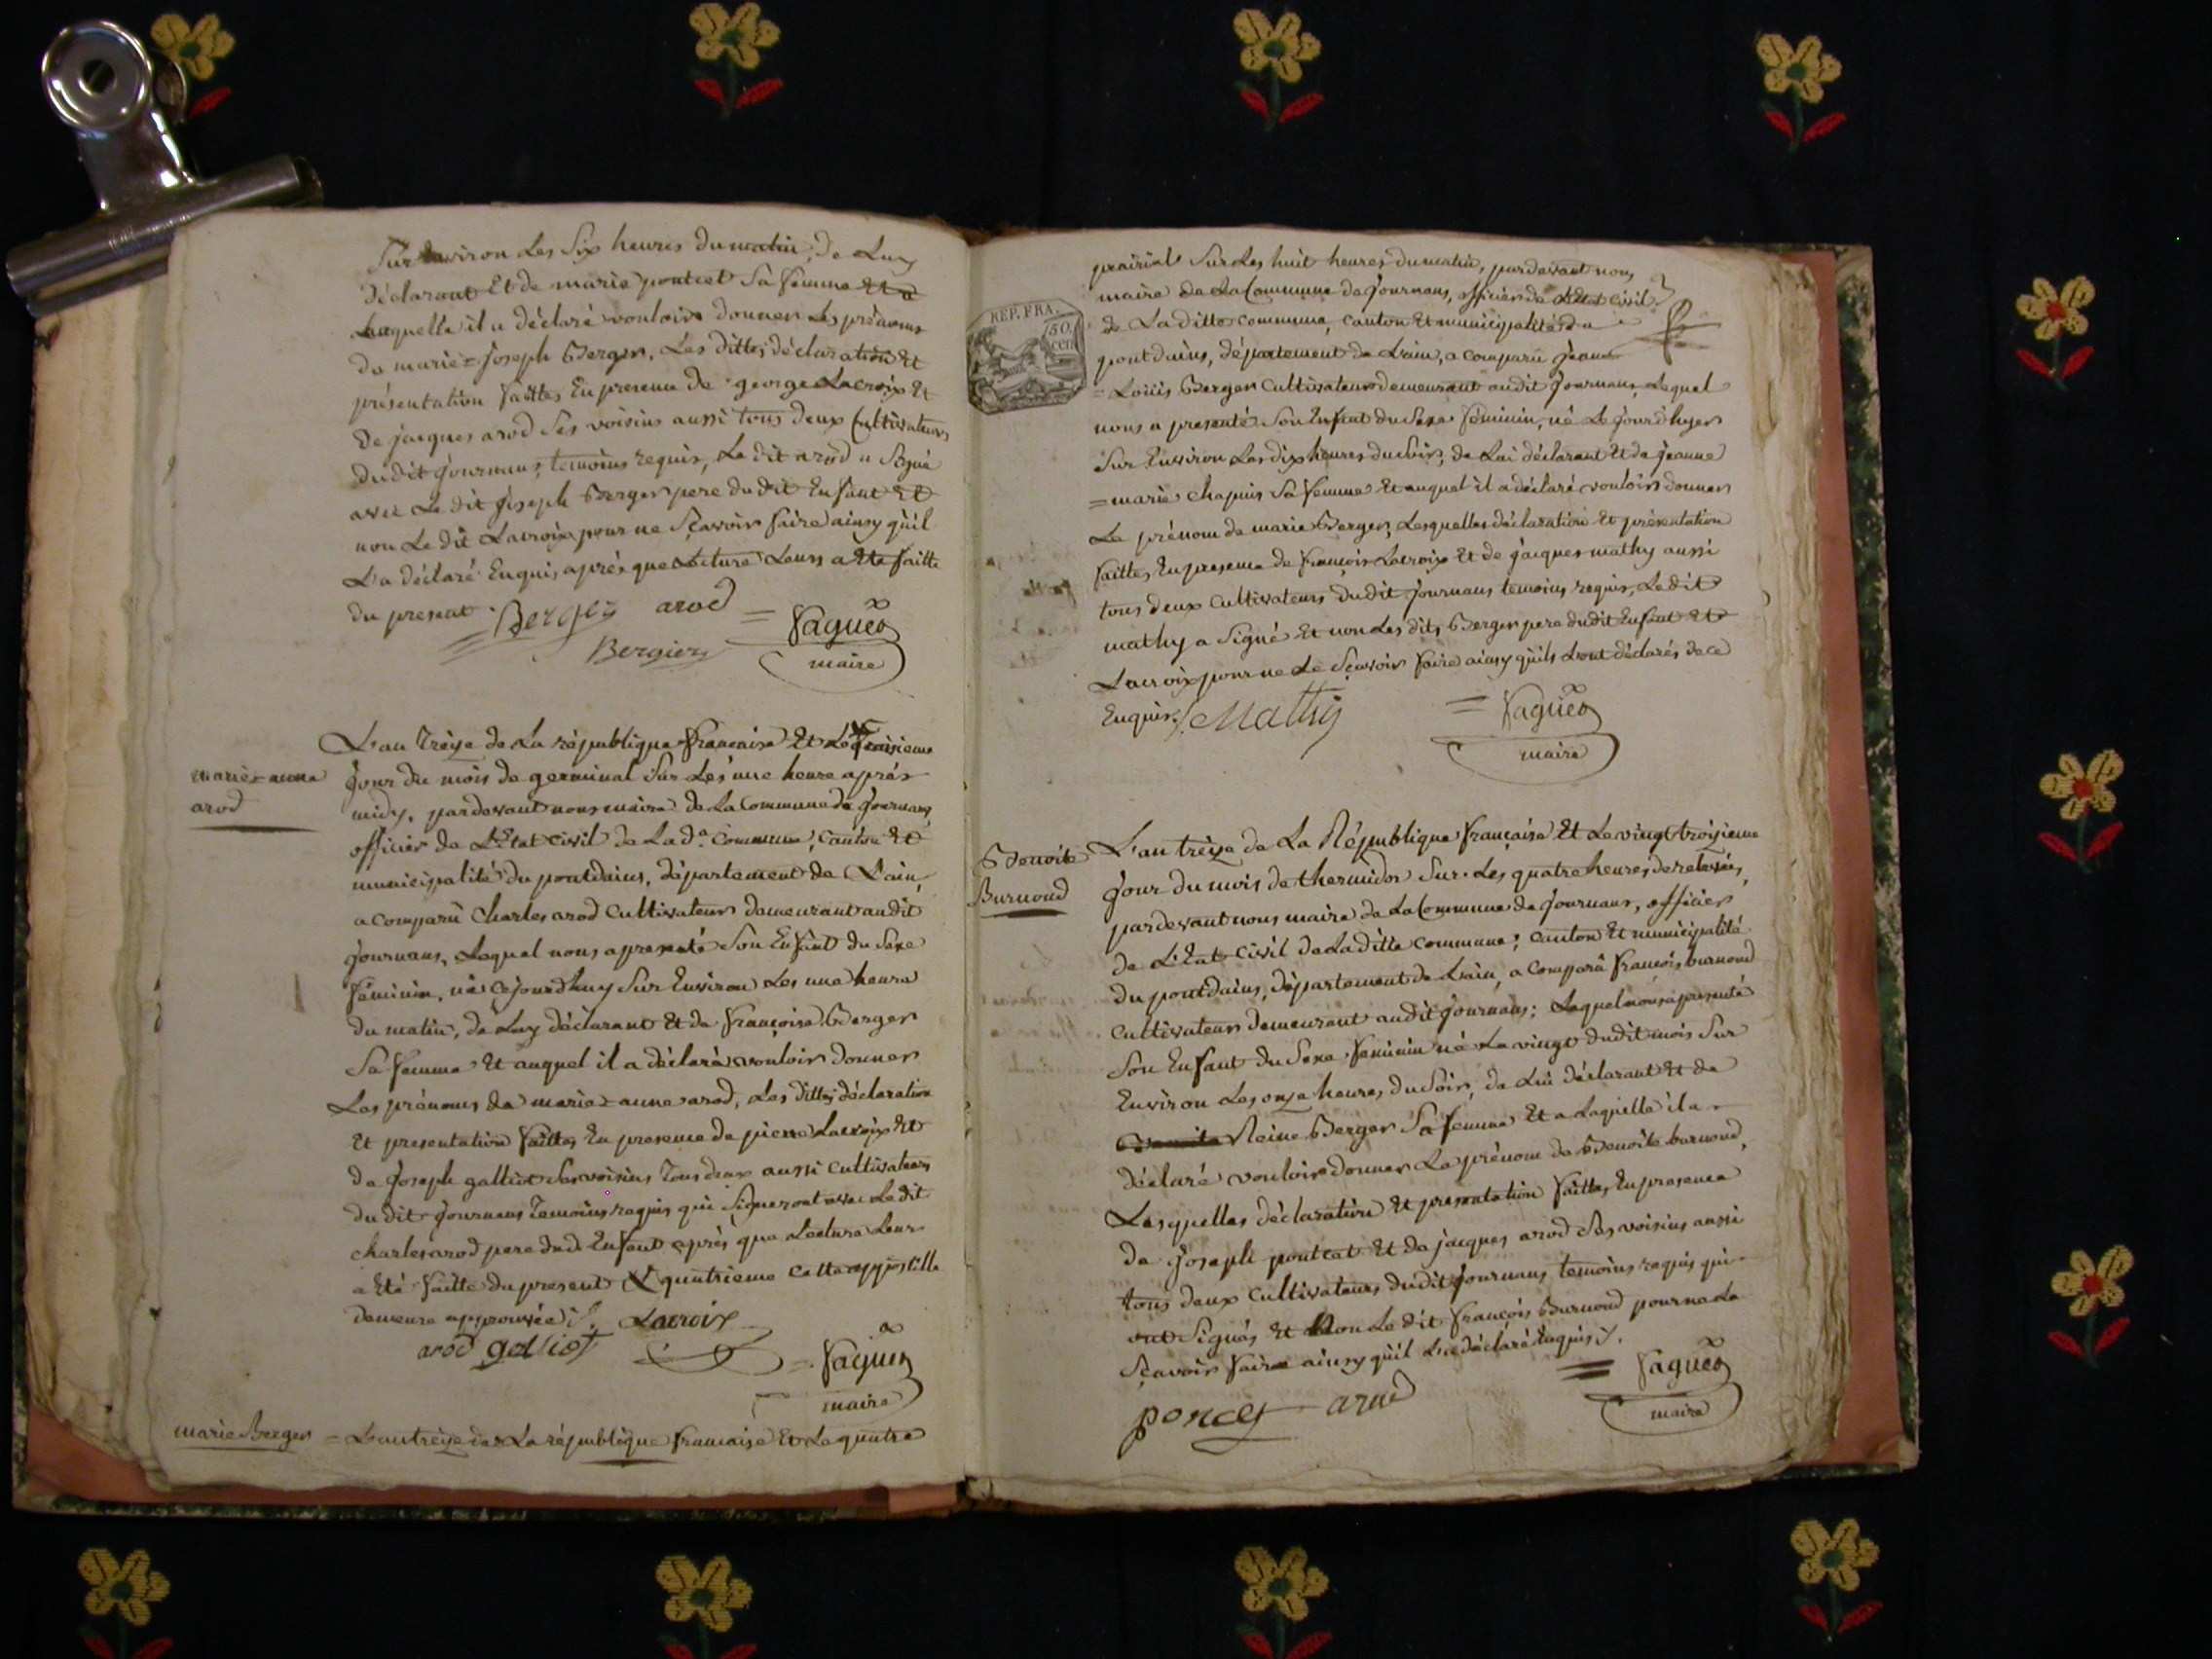 Sur Environ Les Six heures du matin, de Luy
déclarant Et de marie pontcet Sa femme Et a
Laquelle il a déclaré vouloir donner Les prénoms
de marie=joseph Berger. Les dittes déclaration Et
présentation faittes En presence de george Lacroix Et
de jacques arod Ses voisins aussi tous deux Cultivateurs
dudit journans, temoins requis, Le dit arod a Signé
avec Le dit joseph Berger pere du dit Enfant Et
non Le dit Lacroix pour ne Sçavoir faire ainsy qu'il
L'a déclaré Enquis après que Lecture Leurs a Eté faitte
du present
Berger arod = Vagueo
Bergier maire
marie=anne
arod
L'an treize de La république française Et Le Troisieme
jour du mois de germinal Sur Les une heure après
midy, pardevant nous maire de La Commune de journans,
officier de L'Etat civil de La de. Commune, Canton Et
municipalité du pontdains, département de L'ain,
a comparû Charles arod Cultivateur demeurant audit
journans, Lequel nous a presenté Son Enfant du Sexe
féminin, né Cejourdhuy Sur Environ Les une heure
du matin, de Luy déclarant Et de françoise Berger
Sa femme Et auquel il a déclaré vouloir donner
Les prénoms de marie=anne arod, Les dittes déclaration
Et presentation faittes En presence de pierre Lacroix Et
de joseph galliot Ses voisins Tous deux aussi cultivateurs
du dit journans Temoins requis qui Signeront avec Le dit
charles arod pere dud. Enfant après que Lecture Leur
a Eté faitte du present quatrieme cette appostille
demeure approuvée
Lacroix
arod galliot = Vagueo
maire
marie Berger
= L'an treize de La république française Et Le quatre
REP. FRA.
50
cent
prairial Sur Les huit heures du matin, pardevant nous
maire de La Commune de journans, officier de L'Etat civil
de La ditte commune, canton Et municipalité du
pontdains, département de L'ain, a comparu jean
= Loüis Berger Cultivateur demeurant audit journans, Lequel
nous a presenté Son Enfant du Sexe féminin, né Le jour d'hyer
Sur Environ Les dix heures du Soir, de Lui déclarant Et de jeanne
=marie chapuis Sa femme Et auquel il a déclaré vouloir donner
Le prénom de marie Berger, Lesquelles déclaration Et présentation
faittes En presence de françois Lacroix Et de jacques mathy aussi
tous deux cultivateurs du dit journans temoins requis, Le dit
mathy a Signé Et non Les dits Berger pere du dit Enfant Et
Lacroix pour ne Le Sçavoir faire ainsy qu'ils L'ont déclarés de ce
Enquis. Mathy = Vagueo
maire
Benoite
Burnoud
L'an treize de La République française Et Le vingt troisieme
jour du mois de thermidor Sur Les quatre heures de relevée,
pardevant nous maire de La Commune de journans, officier
de L'Etat civil de La ditte commune, canton Et municipalité
du pontdains, département de L'ain, a comparû françois burnoud
cultivateur demeurant audit journans; Lequel nous a presenté
Son Enfant du Sexe feminin né Le vingt dudit mois Sur
Environ Les onze heures du Soir, de Lui déclarant Et de
Reine Berger Sa femme Et a Laquelle il a
déclaré vouloir donner Le prénom de Benoite burnoud,
Lesquelles déclaration Et presentation faittes En presence
de joseph pontcet Et de jacques arod Ses voisins aussi
tous deux cultivateurs du dit journans temoins requis qui
ont Signés Et Non Le dit françois Burnoud pour ne Le
Sçavoir faire ainsy qu'il L'a déclaré Enquis
poncet arod = Vagueo
maire